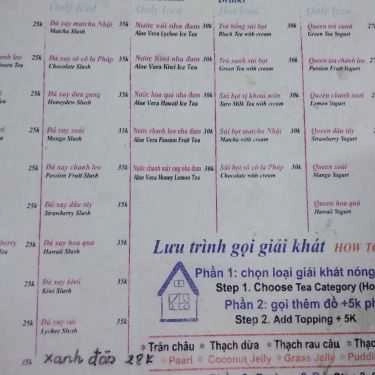 Only Iced
Only Iced
Hot/Iced
Only Iced
25k
Đá xay matcha Nhật
Matcha Slush
35k
Nước vải nha đam
Aloe Vera Lychee Ice Tea
30k
Trà hồng sủi bọt
Black Tea with cream
30k
Queen trà xanh
Green Tea Yogurt
chanh leo
25k
Đá xay sô cô la Pháp
Chocolate Slush
35k
Nước Kiwi nha đam
Aloe Vera Kiwi Ice Tea
30k
Trà xanh sủi bọt
Green Tea with cream
30k
Queen trà chanh leo
Passion Fruit Yogurt
25k
Đá xay dưa gang
Honeydew Slush
35k
Nước hoa quả nha đam
Aloe Vera Hawaii Ice Tea
30k
Sủi bọt vị khoai môn
Taro Milk Tea with cream
30k
Queen chanh tươi
Lemon Yogurt
25k
Đá xay xoài
Mango Slush
35k
Nước chanh leo nha đam
Aloe Vera Passion Fruit Tea
30k
Sủi bọt matcha Nhật
Matcha with cream
30k
Queen dâu tây
Strawberry Yogurt
25k
Đá xay chanh leo
Passion Fruit Slush
35k
Nước chanh mật ong nha đam
Aloe Vera Honey Lemon Tea
30k
Sủi bọt sô cô la Pháp
Chocolate with cream
30k
Queen xoài
Mango Yogurt
25k
Đá xay dâu tây
Strawberry Slush
35k
Queen hoa quả
Hawaii Yogurt
25k
Đá xay hoa quả
Hawaii Slush
35k
Lưu trình gọi giải khát HOW TO
25k
Đá xay kiwi
Kiwi Slush
35k
Phần 1: chọn loại giải khát nóng
Step 1. Choose Tea Category (Ho
Phần 2: gọi thêm đồ +5k ph
Step 2. Add Topping + 5K
25k
Đá xay vải
Lychee Slush
35k
xanh đác 28k
Trân châu
Thạch dừa
Thạch rau câu
Thạc
Pearl
Coconut Jelly
Grass Jelly
Puddi